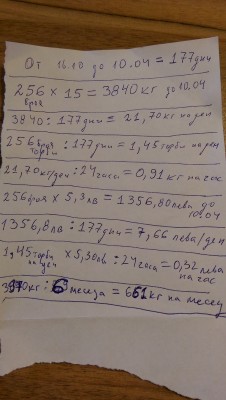 От 16.10 до 10.04 = 177дни
256 × 15 = 3840кг до 10.04
броя
3840 : 177дни = 21,70кг на ден
256 броя : 177дни = 1,45 торби на ден
торби
21,70кг/ден : 24часа = 0,91кг на час
256броя × 5,3лв = 1356,80лева до
10.04
1356,8лв : 177дни = 7,66 лева/ден
1,45торби × 5,30лв : 24часа = 0,32 лева
на ден
на час
кг : 6 месеца = 651кг на месец